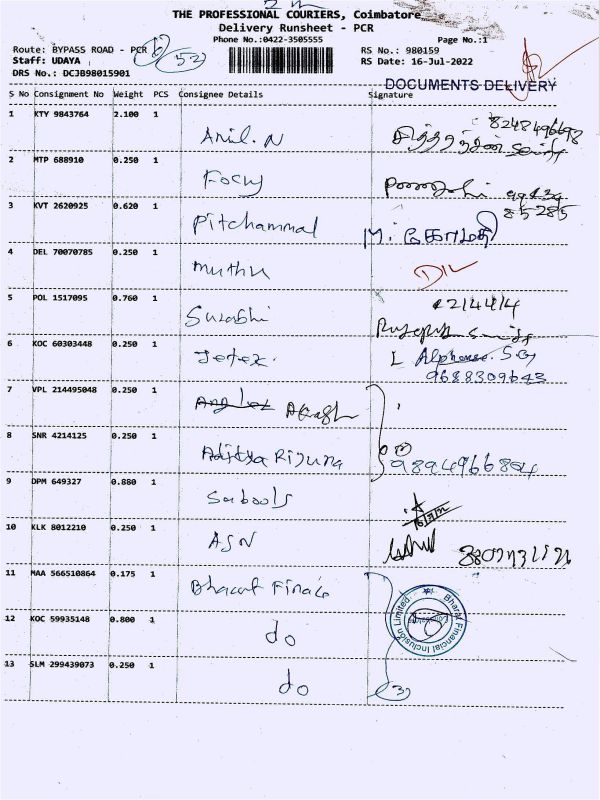 THE PROFESSIONAL COURIERS, Coimbatore
Delivery Runsheet - PCR
Phone No.:0422-3505555
Page No.:1
Route: BYPASS ROAD - PCR
RS No.: 980159
Staff: UDAYA
RS Date: 16-Jul-2022
DRS No.: DCJB98015901
DOCUMENTS DELIVERY
S No Consignment No Weight PCS Consignee Details Signature
1 KTY 9843764 2.100 1 Anil. N
2 MTP 688910 0.250 1
3 KVT 2620925 0.620 1 Pitchammal M. கோமதி
4 DEL 70070785 0.250 1 Muthu
5 POL 1517095 0.760 1 Surabhi
6 KOC 60303448 0.250 1 Alphonse
9688309643
7 VPL 214495048 0.250 1 Akash
8 SNR 4214125 0.250 1 Aditya
9894966804
9 DPM 649327 0.880 1
10 KLK 8012210 0.250 1 ASN
11 MAA 566510864 0.175 1 Bharat
12 KOC 59935148 0.800 1 do
Bharat Financial Inclusion Limited
13 SLM 299439073 0.250 1 do